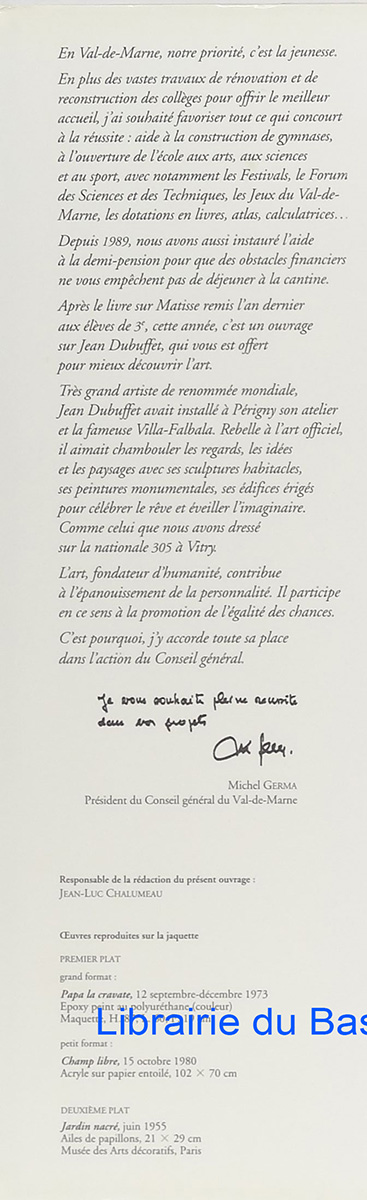 En Val-de-Marne, notre priorité, c'est la jeunesse.
En plus des vastes travaux de rénovation et de
reconstruction des collèges pour offrir le meilleur
accueil, j'ai souhaité favoriser tout ce qui concourt
à la réussite : aide à la construction de gymnases,
à l'ouverture de l'école aux arts, aux sciences
et au sport, avec notamment les Festivals, le Forum
des Sciences et des Techniques, les Jeux du Val-de-
Marne, les dotations en livres, atlas, calculatrices…
Depuis 1989, nous avons aussi instauré l'aide
à la demi-pension pour que des obstacles financiers
ne vous empêchent pas de déjeuner à la cantine.
Après le livre sur Matisse remis l'an dernier
aux élèves de 3e, cette année, c'est un ouvrage
sur Jean Dubuffet, qui vous est offert
pour mieux découvrir l'art.
Très grand artiste de renommée mondiale,
Jean Dubuffet avait installé à Périgny son atelier
et la fameuse Villa-Falbala. Rebelle à l'art officiel,
il aimait chambouler les regards, les idées
et les paysages avec ses sculptures habitacles,
ses peintures monumentales, ses édifices érigés
pour célébrer le rêve et éveiller l'imaginaire.
Comme celui que nous avons dressé
sur la nationale 305 à Vitry.
L'art, fondateur d'humanité, contribue
à l'épanouissement de la personnalité. Il participe
en ce sens à la promotion de l'égalité des chances.
C'est pourquoi, j'y accorde toute sa place
dans l'action du Conseil général.
Je vous souhaite pleine reussite
dans vos projets
Michel GERMA
Président du Conseil général du Val-de-Marne
Responsable de la rédaction du présent ouvrage :
JEAN-LUC CHALUMEAU
Œuvres reproduites sur la jaquette
PREMIER PLAT
grand format :
Papa la cravate, 12 septembre-décembre 1973
Epoxy peint au polyuréthane (couleur)
Maquette, H.
Librairie du Bas
petit format :
Champ libre, 15 octobre 1980
Acryle sur papier entoilé, 102 × 70 cm
DEUXIÈME PLAT
Jardin nacré, juin 1955
Ailes de papillons, 21 × 29 cm
Musée des Arts décoratifs, Paris